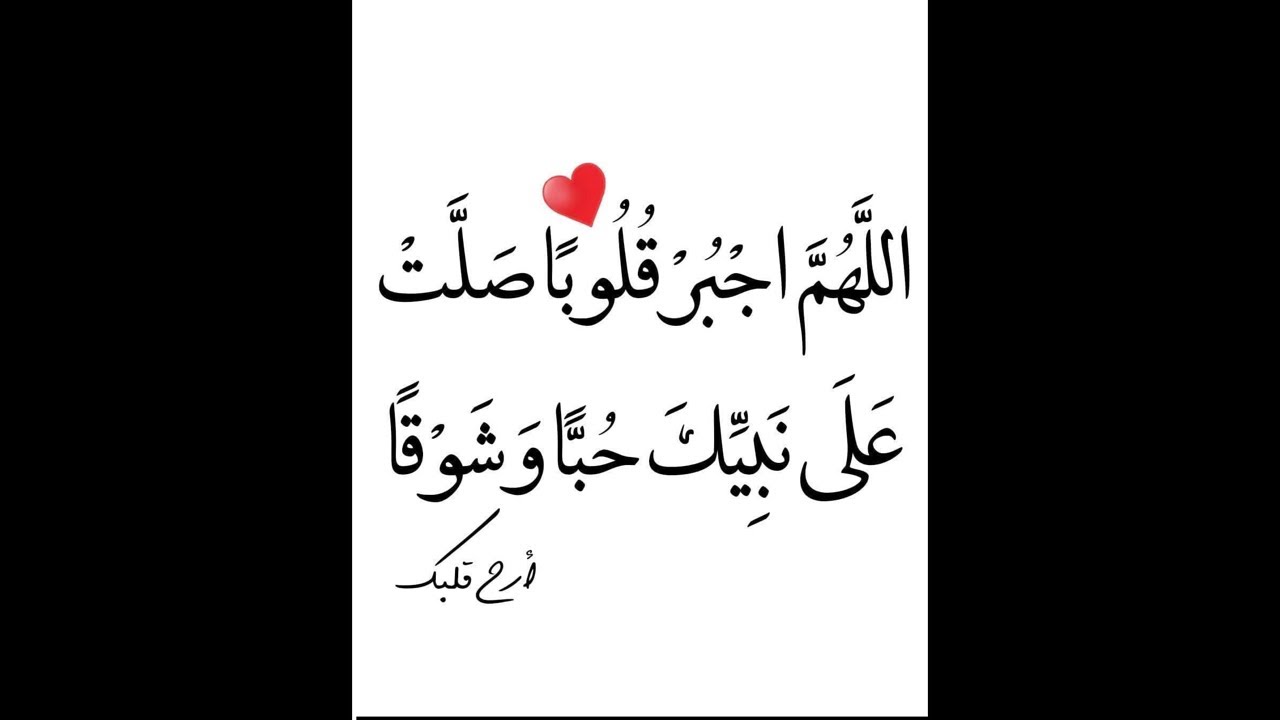 اللَّهُمَّ اجْبُرْ قُلُوبًا صَلَّتْ
عَلَى نَبِيِّكَ حُبًّا وَشَوْقًا
أرح قلبك